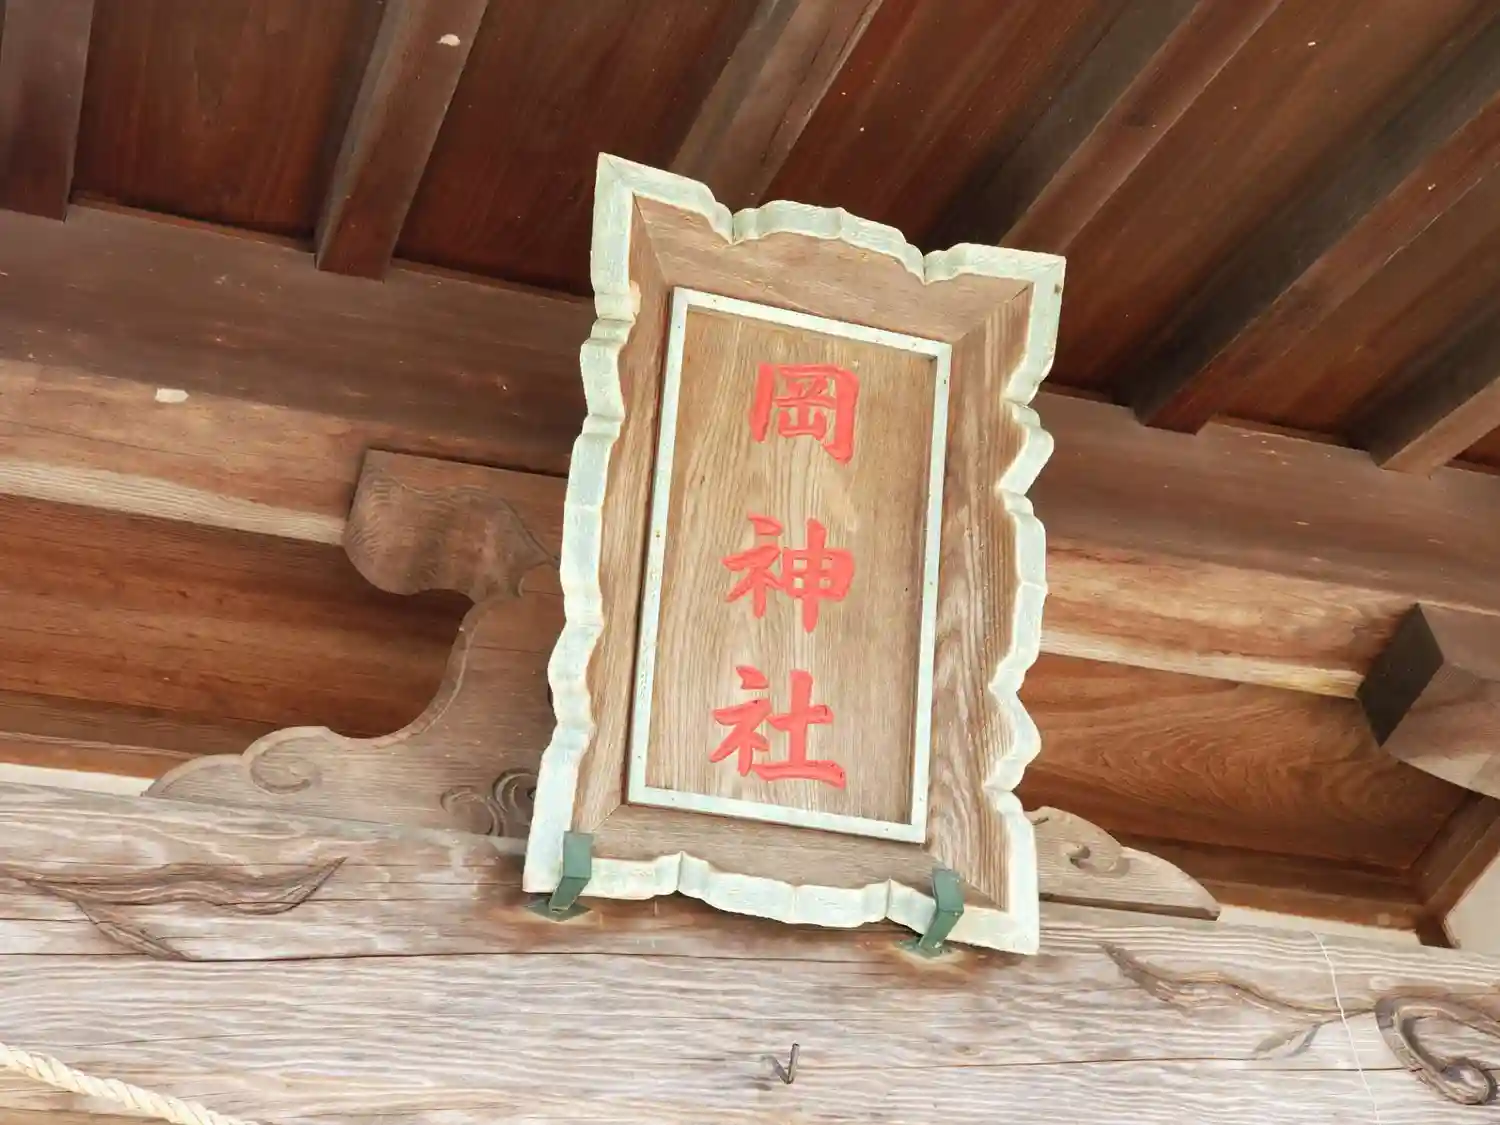 岡神社